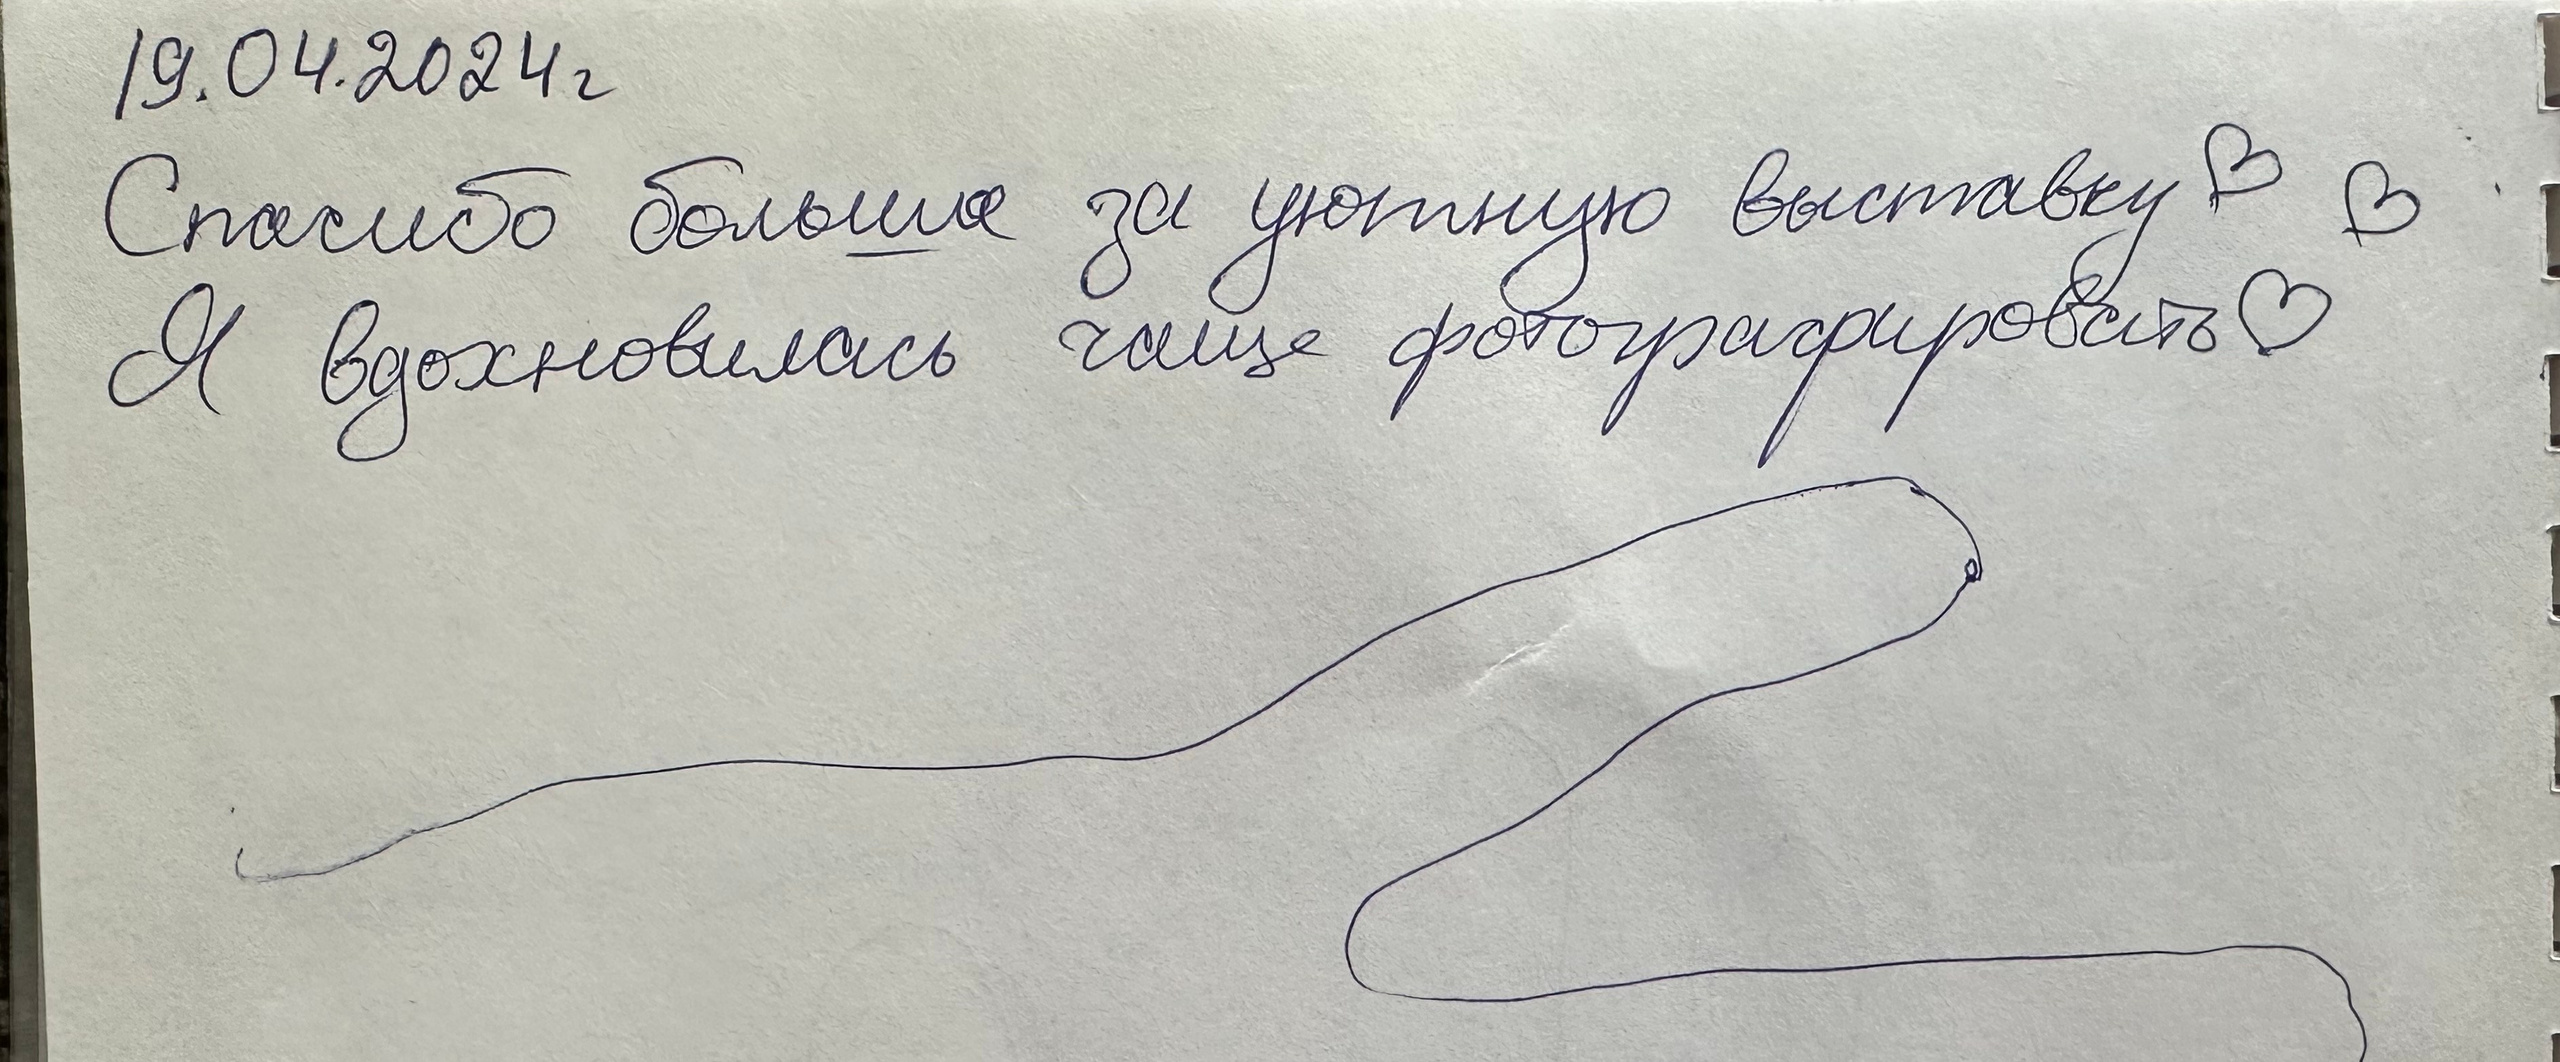 19.04.2024г
Спасибо большое за уютную выставку♡ ♡
Я вдохновилась чаще фотографировать♡